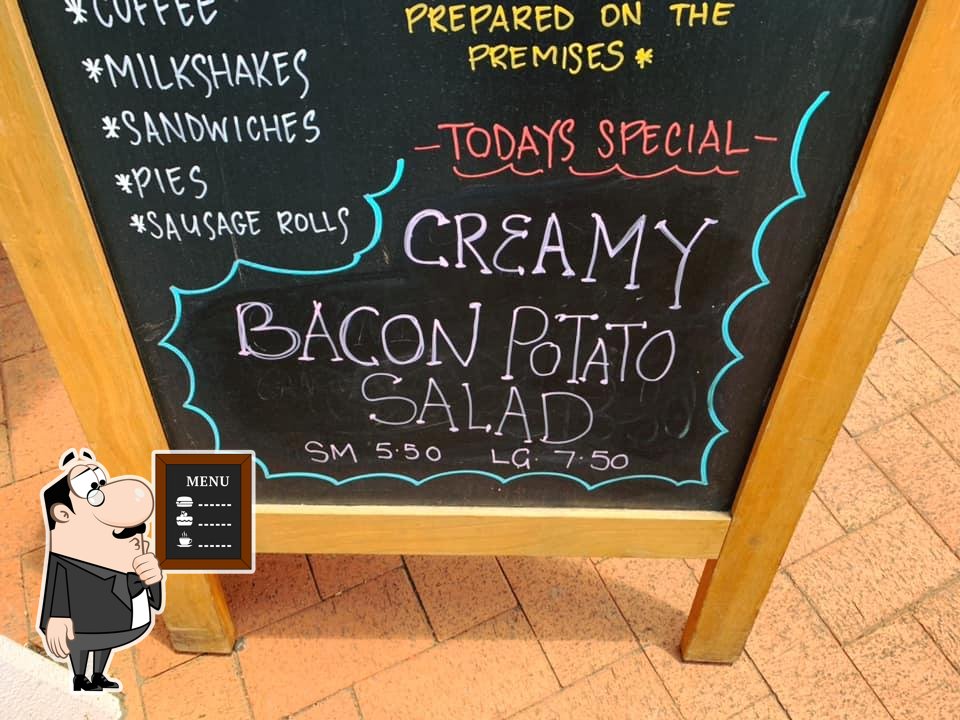 *COFFEE
*MILKSHAKES
*SANDWICHES
*PIES
*SAUSAGE ROLLS
PREPARED ON THE
PREMISES*
-TODAYS SPECIAL-
CREAMY
BACON POTATO
SALAD
SM 5.50 LG. 7.50
MENU